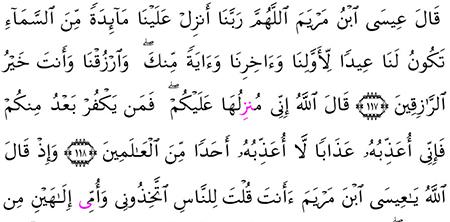 قَالَ عِيسَى ٱبْنُ مَرْيَمَ ٱللَّهُمَّ رَبَّنَا أَنزِلْ عَلَيْنَا مَآئِدَةً مِّنَ ٱلسَّمَآءِ
تَكُونُ لَنَا عِيدًا لِّأَوَّلِنَا وَءَاخِرِنَا وَءَايَةً مِّنكَ ۖ وَٱرْزُقْنَا وَأَنتَ خَيْرُ
ٱلرَّٰزِقِينَ ﴿١١٧﴾ قَالَ ٱللَّهُ إِنِّى مُنزِلُهَا عَلَيْكُمْ ۖ فَمَن يَكْفُرْ بَعْدُ مِنكُمْ
فَإِنِّى أُعَذِّبُهُۥ عَذَابًا لَّا أُعَذِّبُهُۥ أَحَدًا مِّنَ ٱلْعَٰلَمِينَ ﴿١١٨﴾ وَإِذْ قَالَ
ٱللَّهُ يَٰعِيسَى ٱبْنَ مَرْيَمَ ءَأَنتَ قُلْتَ لِلنَّاسِ ٱتَّخِذُونِى وَأُمِّى إِلَٰهَيْنِ مِن